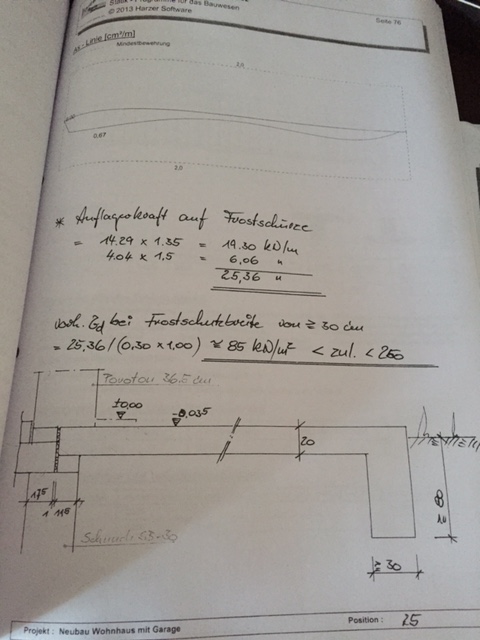 Statik - Programme für das Bauwesen
© 2013 Harzer Software
Seite 76
As - Linie [cm²/m]
Mindestbewehrung
2,0
0,67
2,0
* Auflagerkraft auf Frostschürze
= 14.29 x 1.35 = 19.30 kN/m
4.04 x 1,5 = 6,06 "
25,36 "
vorh. σd bei Frostschutzbreite von ≥ 30 cm
= 25,36/(0,30 x 1,00) ≅ 85 kN/m² < zul. < 250
Poroton 36.5 cm
±0,00
-0,035
20
17⁵
1
11⁵
≥ 30
Projekt : Neubau Wohnhaus mit Garage
Position : 25